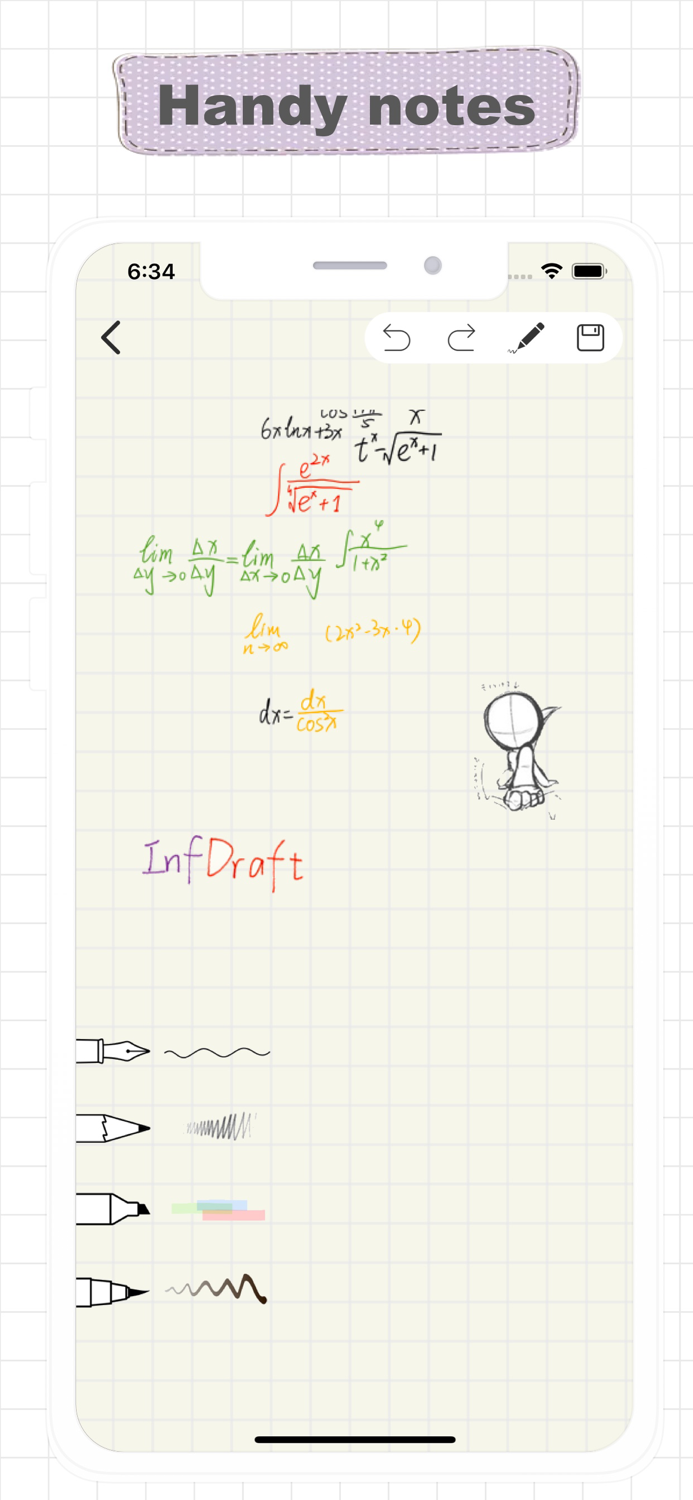 Handy notes
6:34
cos
5
x
6x ln x + 3x
t^x = √(e^x + 1)
∫ e^(2x) / ⁴√(e^x + 1)
lim Δy→0 Δx/Δy = lim Δx→0 Δx/Δy ∫ x^4 / (1 + x^2)
lim n→∞ (2x² - 3x · 4)
dx = dx / cos²x
InfDraft